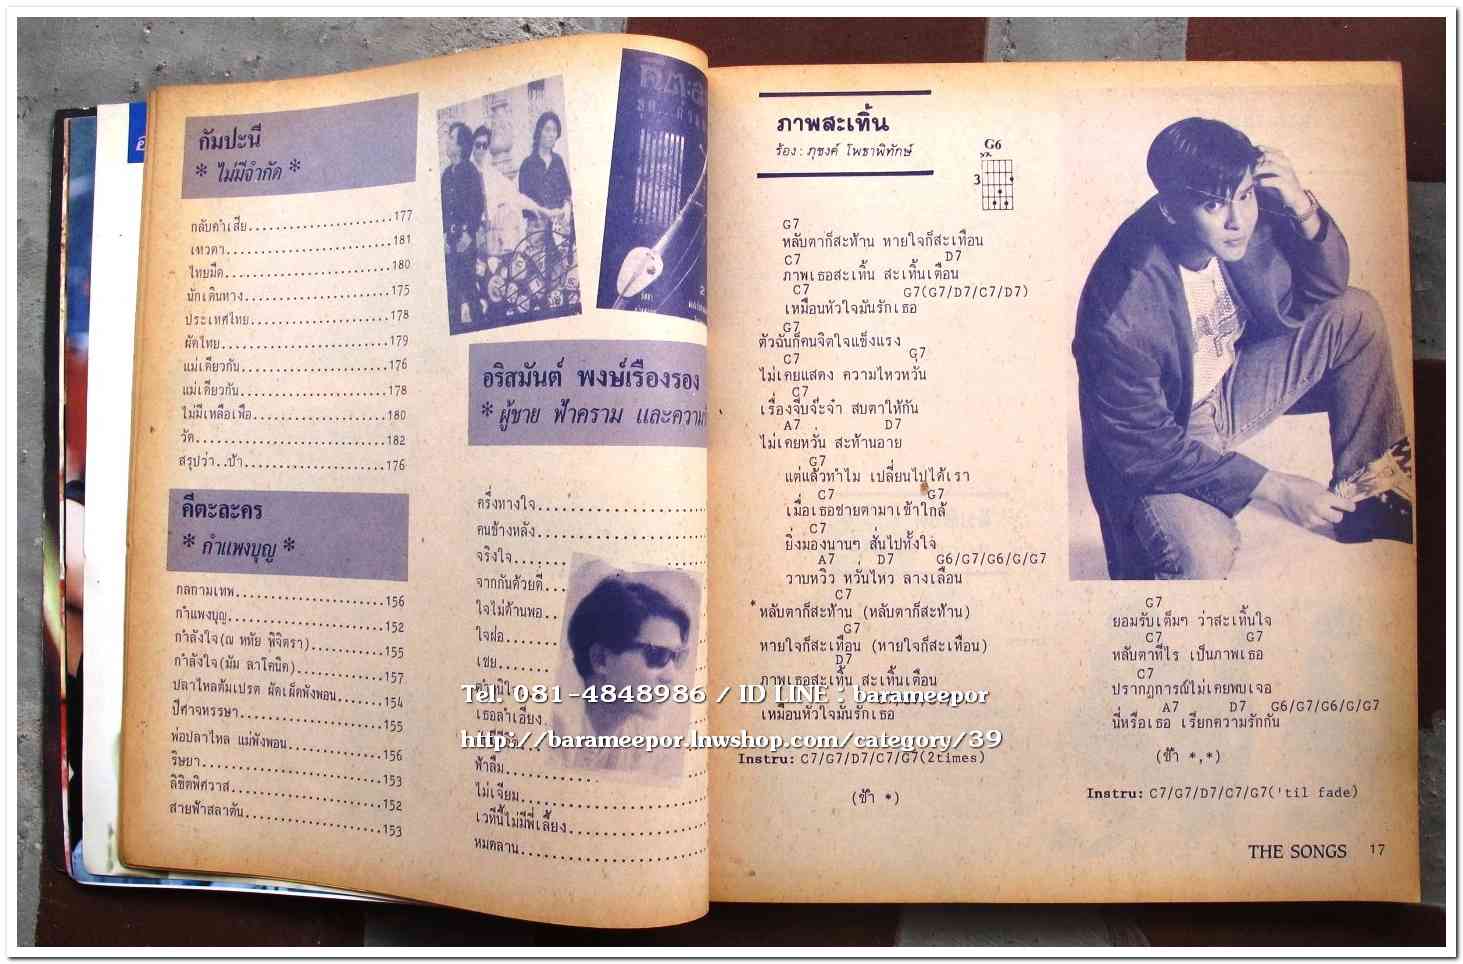 กัมปะนี
* ไม่มีจำกัด *
กลับคำเสีย 177
เทวดา 181
ไทยมืด 180
นักเดินทาง 175
ประเทศไทย 178
ผัดไทย 179
แม่เดียวกัน 176
แม่เดียวกัน 178
ไม่มีเหลือเฟือ 180
วัด 182
สรุปว่า..บ้า 176
คีตะละคร
* กำแพงบุญ *
กลกามเทพ 156
กำแพงบุญ 152
กำลังใจ(ณ หทัย พิจิตรา) 155
กำลังใจ(มัม ลาโคนิค) 157
ปลาไหลต้มเปรต ผัดเผ็ดพังพอน 154
ปีศาจหรรษา 155
พ่อปลาไหล แม่พังพอน 156
ริษยา 153
ลิขิตพิศวาส 152
สายฟ้าสลาตัน 153
อริสมันต์ พงษ์เรืองรอง
* ผู้ชาย ฟ้าคราม และความ
ครึ่งทางใจ
คนข้างหลัง
จริงใจ
จากกันด้วยดี
ใจไม่ด้านพอ
ใจฝ่อ
เชย
เธอลำเอียง
ฟ้าลืม
ไม่เจียม
เวทีนี้ไม่มีพี่เลี้ยง
หมดลาน
ภาพสะเทิ้น
ร้อง : ภุชงค์ โพธาพิทักษ์
G6
xx
3
G7
หลับตาก็สะท้าน หายใจก็สะเทือน
C7 D7
ภาพเธอสะเทิ้น สะเทิ้นเตือน
C7 G7(G7/D7/C7/D7)
เหมือนหัวใจมันรักเธอ
G7
ตัวฉันก็คนจิตใจแข็งแรง
C7 G7
ไม่เคยแสดง ความไหวหวั่น
C7
เรื่องจีบจ๊ะจ๋า สบตาให้กัน
A7 D7
ไม่เคยหวั่น สะท้านอาย
G7
แต่แล้วทำไม เปลี่ยนไปได้เรา
C7 G7
เมื่อเธอชายตามาเข้าใกล้
C7
ยิ่งมองนานๆ สั่นไปทั้งใจ
A7 D7 G6/G7/G6/G/G7
วาบหวิว หวั่นไหว ลางเลือน
C7
*หลับตาก็สะท้าน (หลับตาก็สะท้าน)
G7
หายใจก็สะเทือน (หายใจก็สะเทือน)
D7
ภาพเธอสะเทิ้น สะเทิ้นเตือน
เหมือนหัวใจมันรักเธอ
Instru: C7/G7/D7/C7/G7(2times)
(ซ้ำ *)
G7
ยอมรับเต็มๆ ว่าสะเทิ้นใจ
C7 G7
หลับตาทีไร เป็นภาพเธอ
C7
ปรากฏการณ์ไม่เคยพบเจอ
A7 D7 G6/G7/G6/G/G7
นี่หรือเธอ เรียกความรักกัน
(ซ้ำ *,*)
Instru: C7/G7/D7/C7/G7('til fade)
THE SONGS 17
Tel. 081-4848986 / ID LINE : barameepor
http://barameepor.lnwshop.com/category/39